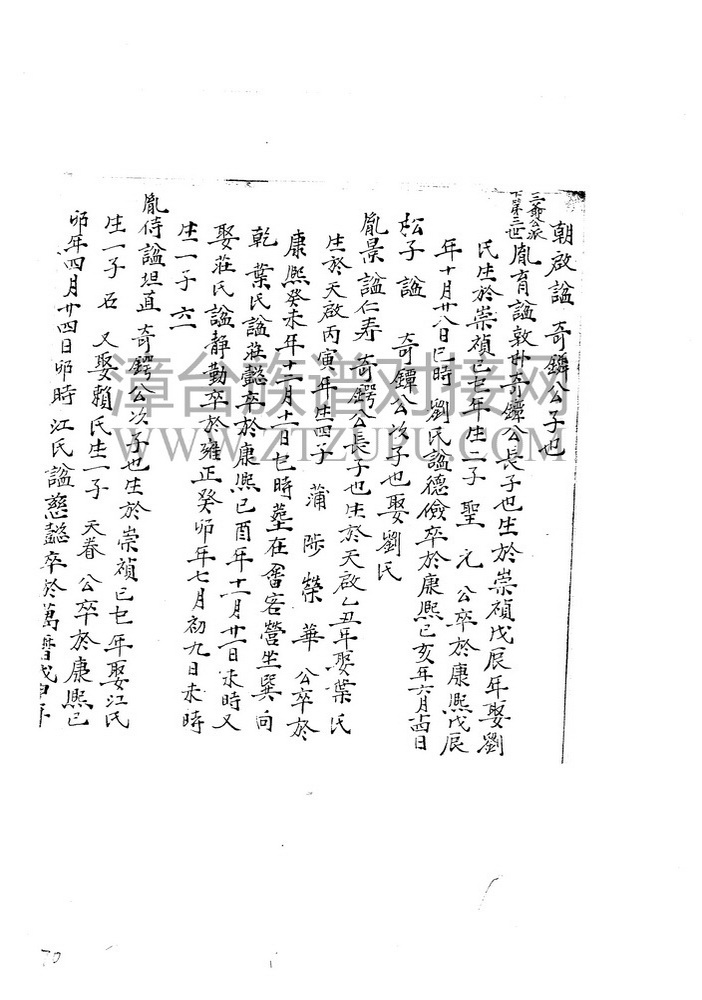 朝啟諡 奇鐔公子也
三爺派
下第三世
胤育諡敦朴奇鐔公長子也生於崇禎戊辰年娶劉
氏生於崇禎己巳年生一子 聖元 公卒於康熙戊辰
年十月廿八日巳時 劉氏諡德儉卒於康熙己亥年六月十四日
松子諡 奇鐔公次子也娶劉氏
胤景諡仁寿 奇鍔公長子也生於天啟乙丑年娶葉氏
生於天啟丙寅年生四子 蒲 陟 榮 華 公卒於
康熙癸未年十二月十二日巳時墓在畬客營坐巽向
乾 葉氏諡莊懿卒於康熙己酉年十二月廿一日未時又
娶莊氏諡靜勤卒於雍正癸卯年七月初九日未時
生一子 六
胤侍諡坦直 奇鍔公次子也生於崇禎己巳年娶江氏
生一子石 又娶賴氏生一子 天眷 公卒於康熙己
卯年四月廿四日卯時 江氏諡慈懿卒於萬曆戊申年
漳台族谱对接网
WWW.ZTZUPU.COM
70